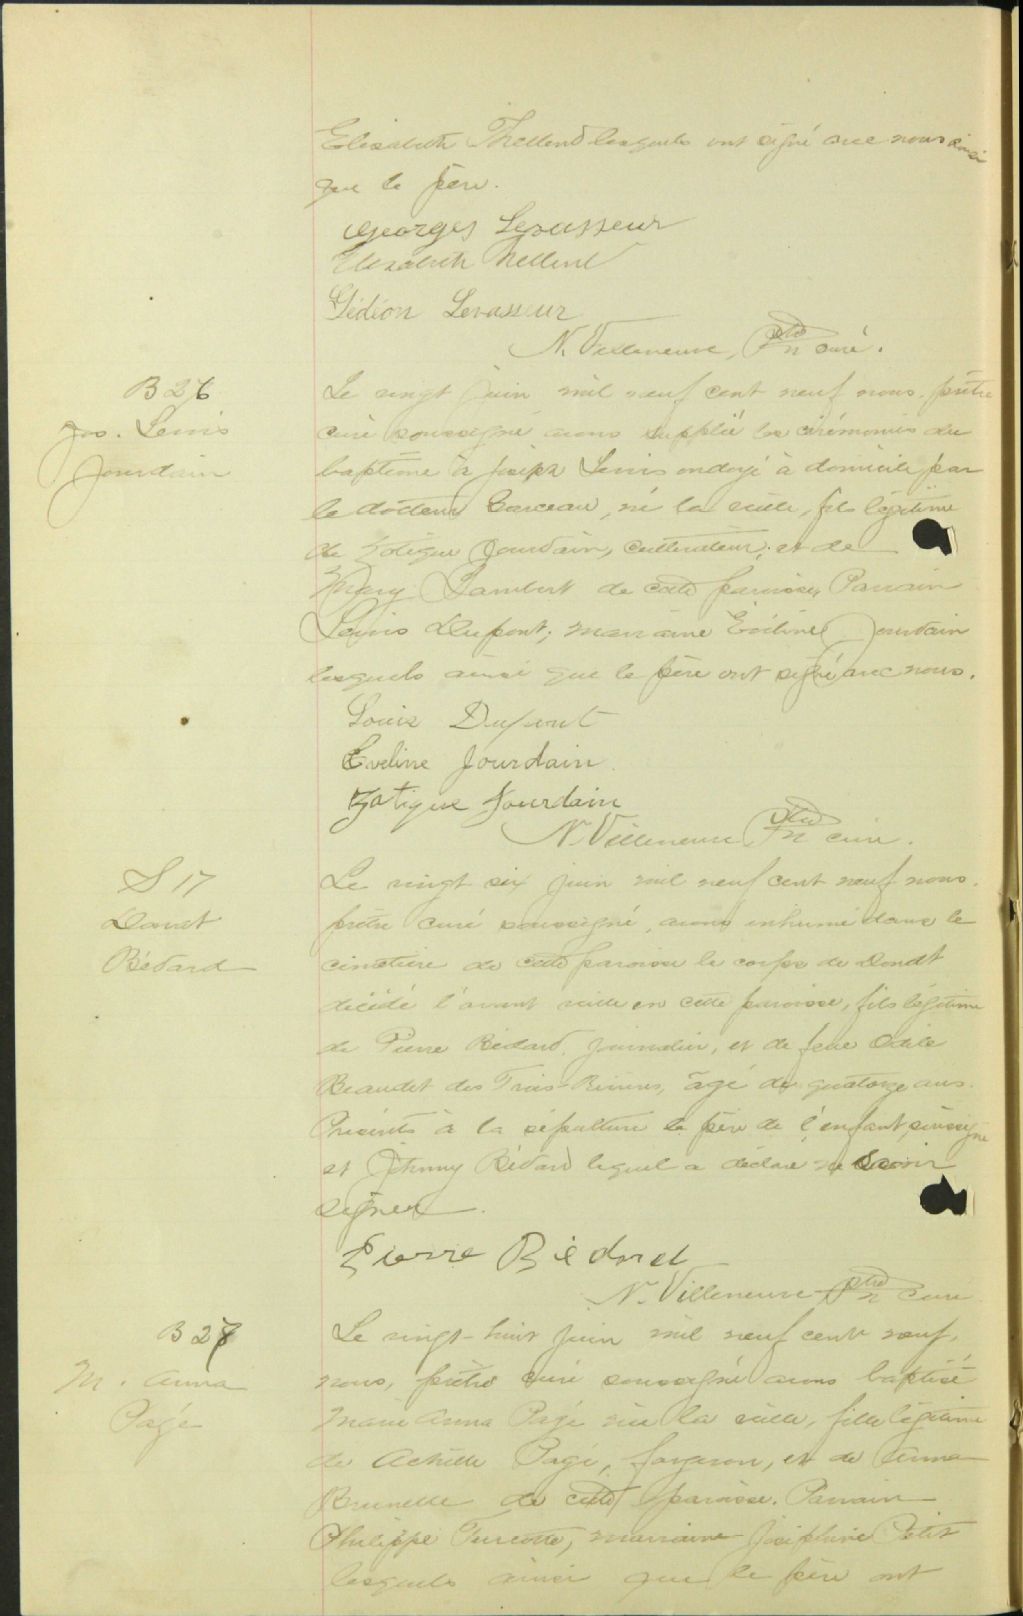 Elisabeth Thellend lesquels ont signé avec nous ainsi
que le père.
Georges Levasseur
Elizabeth Thellend
Gédéon Levasseur
N. Villeneuve, Ptre curé.
B 26
Jos. Louis
Jourdain
Le vingt juin mil neuf cent neuf nous, prêtre
curé soussigné avons supplié les cérémonies du
baptême à Joseph Louis ondoyé à domicile par
le docteur Garceau, né la veille, fils légitime
de Zotique Jourdain, cultivateur, et de
Mary Lambert de cette paroisse, Parrain
Louis Dupont; marraine Eveline Jourdain
lesquels ainsi que le père ont signé avec nous.
Louis Dupont
Eveline Jourdain
Zotique Jourdain
N. Villeneuve Ptre curé.
S 17
Donat
Bédard
Le vingt six juin mil neuf cent neuf nous,
prêtre curé soussigné, avons inhumé dans le
cimetière de cette paroisse le corps de Donat
décédé l'avant veille en cette paroisse, fils légitime
de Pierre Bédard, journalier, et de feue Odile
Beaudet des Trois-Rivières, âgé de quatorze ans.
Présents à la sépulture le père de l'enfant, soussigné
et Johnny Bédard lequel a déclaré ne savoir
signer.
Pierre Bédard
N. Villeneuve Ptre curé
B 27
M. Anna
Pagé
Le vingt-huit juin mil neuf cent neuf,
nous, prêtre curé soussigné avons baptisé
Marie Anna Pagé née la veille, fille légitime
de Achille Pagé, forgeron, et de Anna
Brunelle de cette paroisse. Parrain
Philippe Turcotte, marraine Joséphine Petit
lesquels ainsi que le père ont